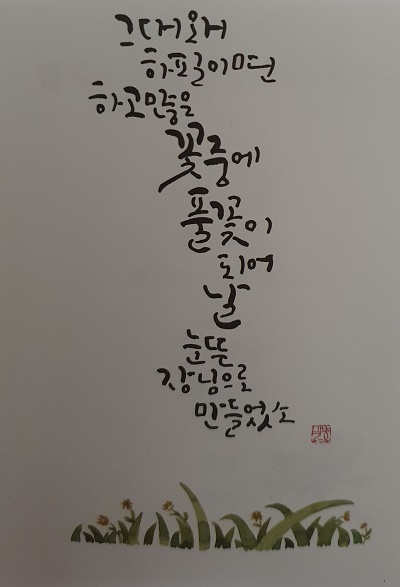 그대 왜
하필이면
하고많은
꽃중에
풀꽃이
되어
날
눈뜬
장님으로
만들었소